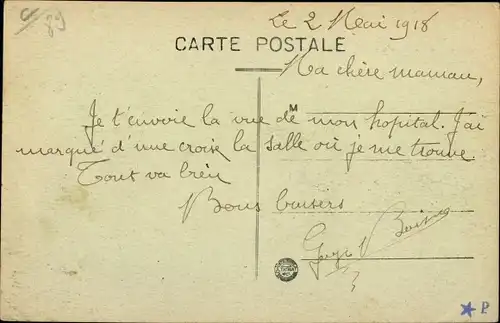 89
Le 2 Mai 1918
CARTE POSTALE
Ma chère maman,
M
Je t'envoie la vue de mon hopital. J'ai
marqué d'une croise la salle où je me trouve
Tout va bien
Bons baisers
P.